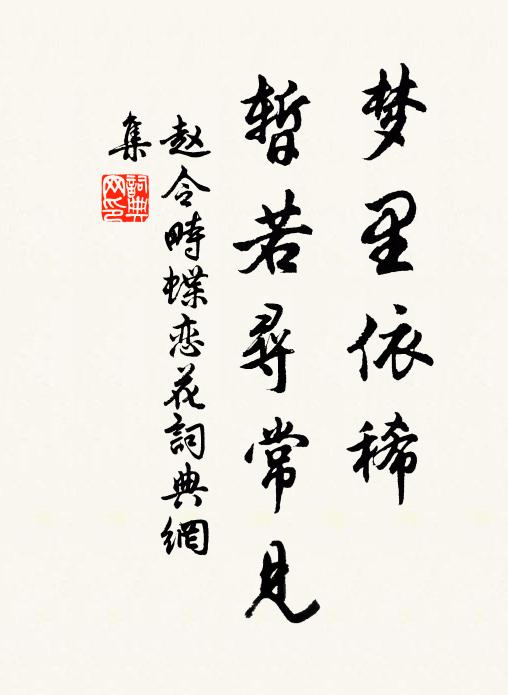 梦里依稀
暂若尋常见
赵令畤蝶恋花詞典網
集
詞典
网印